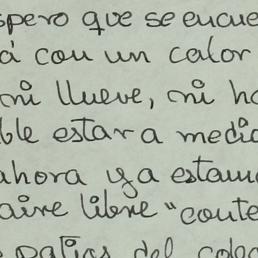 spero que se encue
á con un calor
ni llueve, ni ho
ble estar a medio
ahora ya estamo
aire libre "conte
patios del coleg